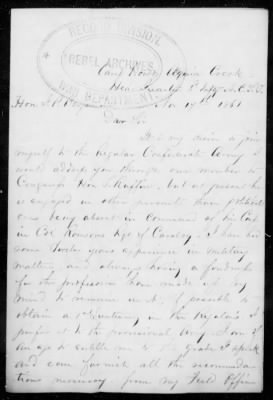 RECORD DIVISION
REBEL ARCHIVES
WAR DEPARTMENT
Camp Aquia Creek
Head Quarters 1st N.C.
Hon. J. P. Nov 17th 1861
Dear Sir
It is my desire to join
myself to the Regular Confederate Army I
would address you through our member to
Congress Hon. but at present he
is engaged in other pursuits than
ones being about in command of his Co
in Col Ransoms Regt of Cavalry. I have had
some twelve years experience in military
matters, and always having a fondness
for the profession have made up my
mind to remain in it, if possible to
obtain a position in the regulars I
prefer it to the provisional Army. I am of
an age to entitle me to the grade I
and can furnish all the recommenda
tions necessary from my Field Officers